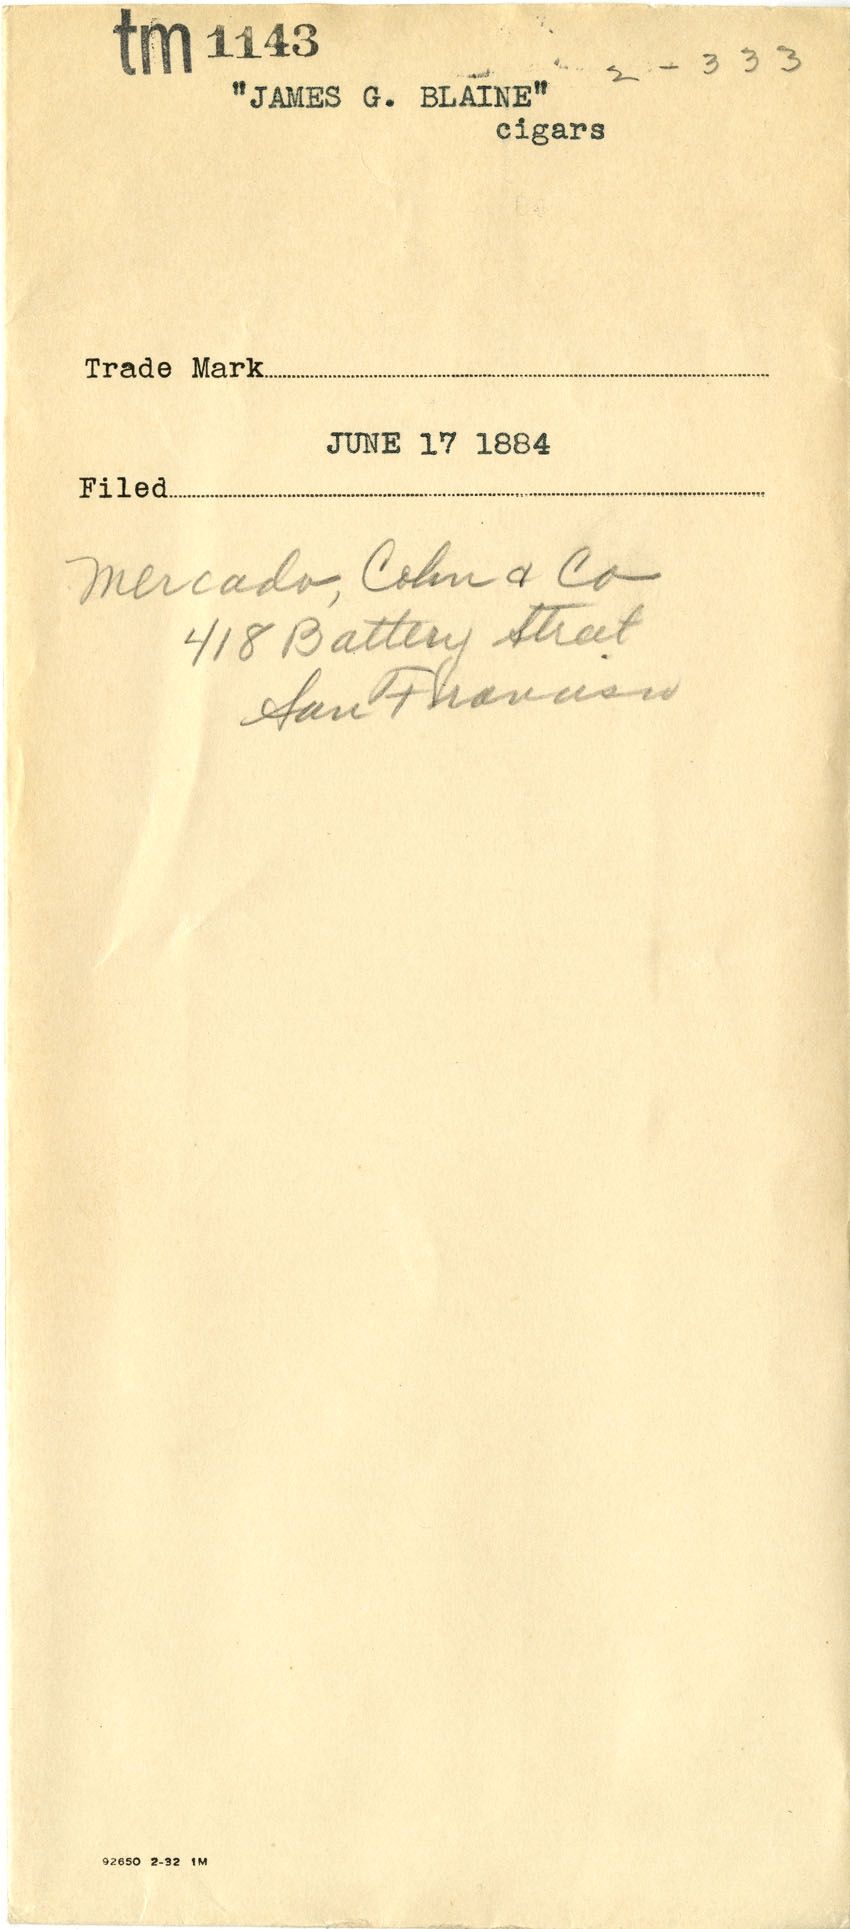 tm 1143
2-333
"JAMES G. BLAINE"
cigars
Trade Mark
JUNE 17 1884
Filed
Mercado, Cohn & Co
418 Battery Street
San Francisco
92650 2-32 1M